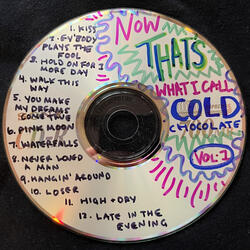 NOW
THAT'S
WHAT I CALL
COLD
CHOCOLATE
VOL: 1
1. KISS
2. EV'BODY
PLAYS THE
FOOL
3. HOLD ON FOR 1
MORE DAY
4. WALK THIS
WAY
5. YOU MAKE
MY DREAMS
COME TRUE
6. PINK MOON
7. WATERFALLS
8. NEVER LOVED
A MAN
9. HANGIN' AROUND
10. LOSER
11. HIGH + DRY
12. LATE IN THE
EVENING